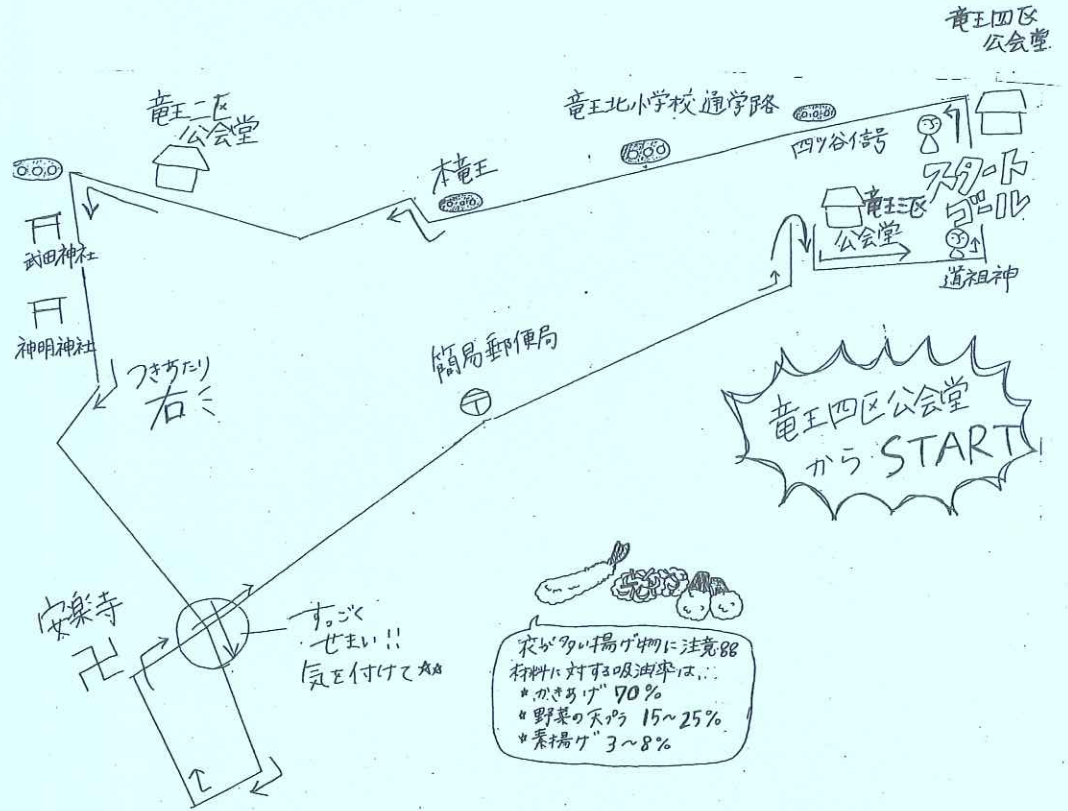 竜王四区
公会堂
竜王二区
公会堂
竜王北小学校通学路
四ツ谷信号
スタート
ゴール
本竜王
竜王三区
公会堂
道祖神
武田神社
神明神社
つきあたり
右
簡易郵便局
竜王四区公会堂
から START
安楽寺
卍
すっごく
せまい!!
気を付けて☆☆
衣が多い揚げ物に注意!!
材料に対する吸油率は…
*かきあげ 70%
*野菜の天プラ 15～25%
*素揚げ 3～8%